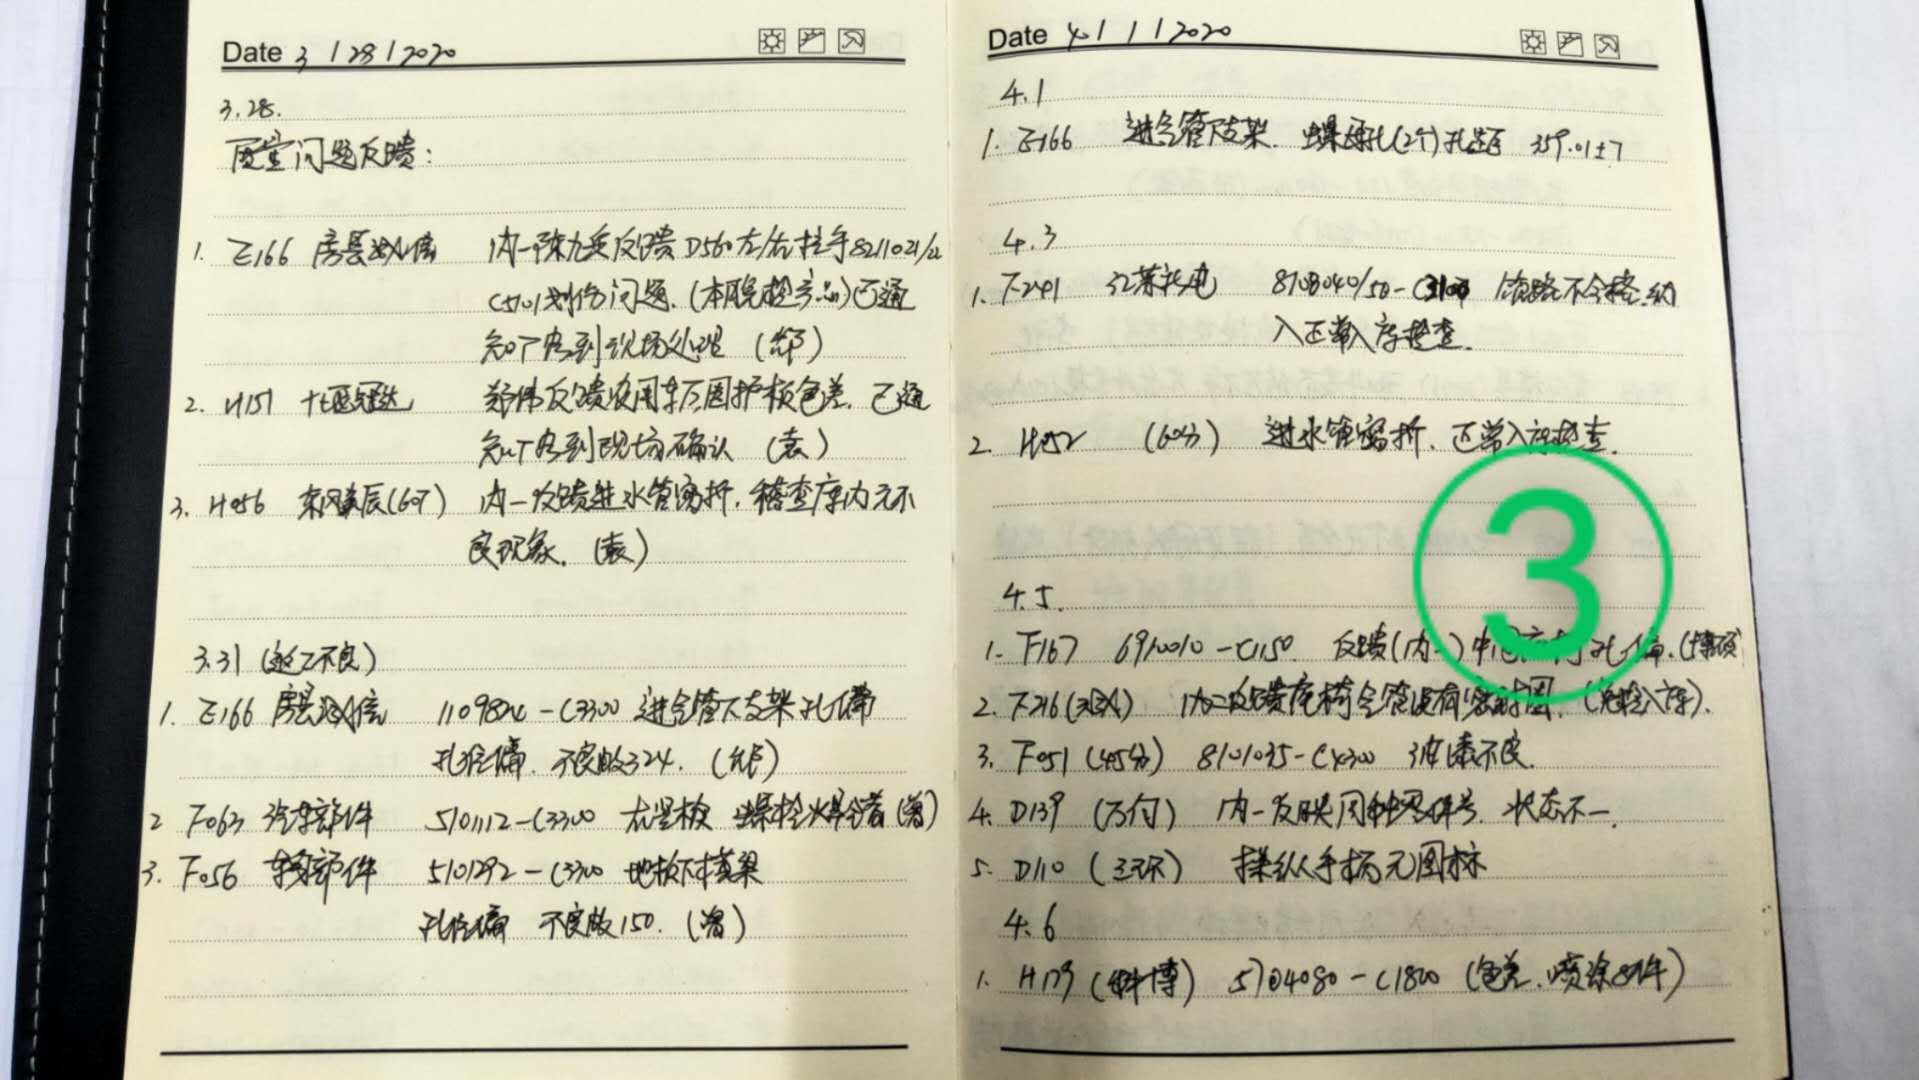 Date 3 / 28 / 2020
3.28.
质量问题反馈:
1. E166 房县 内一陈九英反馈D560左/右拉手8211021/22
C5701划伤问题.(本月免检产品)已通
知厂家到现场处理 (郜)
2. H151 十堰冠达 郑伟反馈农用车后围护板色差.已通
知厂家到现场确认 (袁)
3. H056 东风美辰(60T) 内一反馈进水管弯折.稽查库内无不
良现象. (袁)
3.31 (返工不良)
1. E166 房县 1109824-C3300 进气管下支架孔偏
孔径偏. 不良品324.
2 F063 汽车部件 5101112-C3300 左竖板 螺栓焊
3. F056 车身部件 5101292-C3300 地板下横梁
孔径偏 不良品150.
Date 4 / 1 / 2020
4.1
1. E166 进气管下支架. 螺母孔(2个)孔距 359.01±7
4.3
4.3 1. F241 8108040/50-C3100 不合格.纳
入正常入库检查.
2. H052 (60分) 进水管弯折. 正常入库检查.
③
4.5.
1. F167 6910010-C1150. 反馈(内一) 孔偏.
2. F216 内二反馈座椅气管没有密封圈. (免检入库).
3. F051 (45分) 8101035-C4300 油漆不良.
4. D139 (万付) 内一反映同种零件号. 状态不一.
5. D110 (三环) 操纵手柄无图标
4.6
1. H179 5704080-C1800 (色差.喷涂8件)